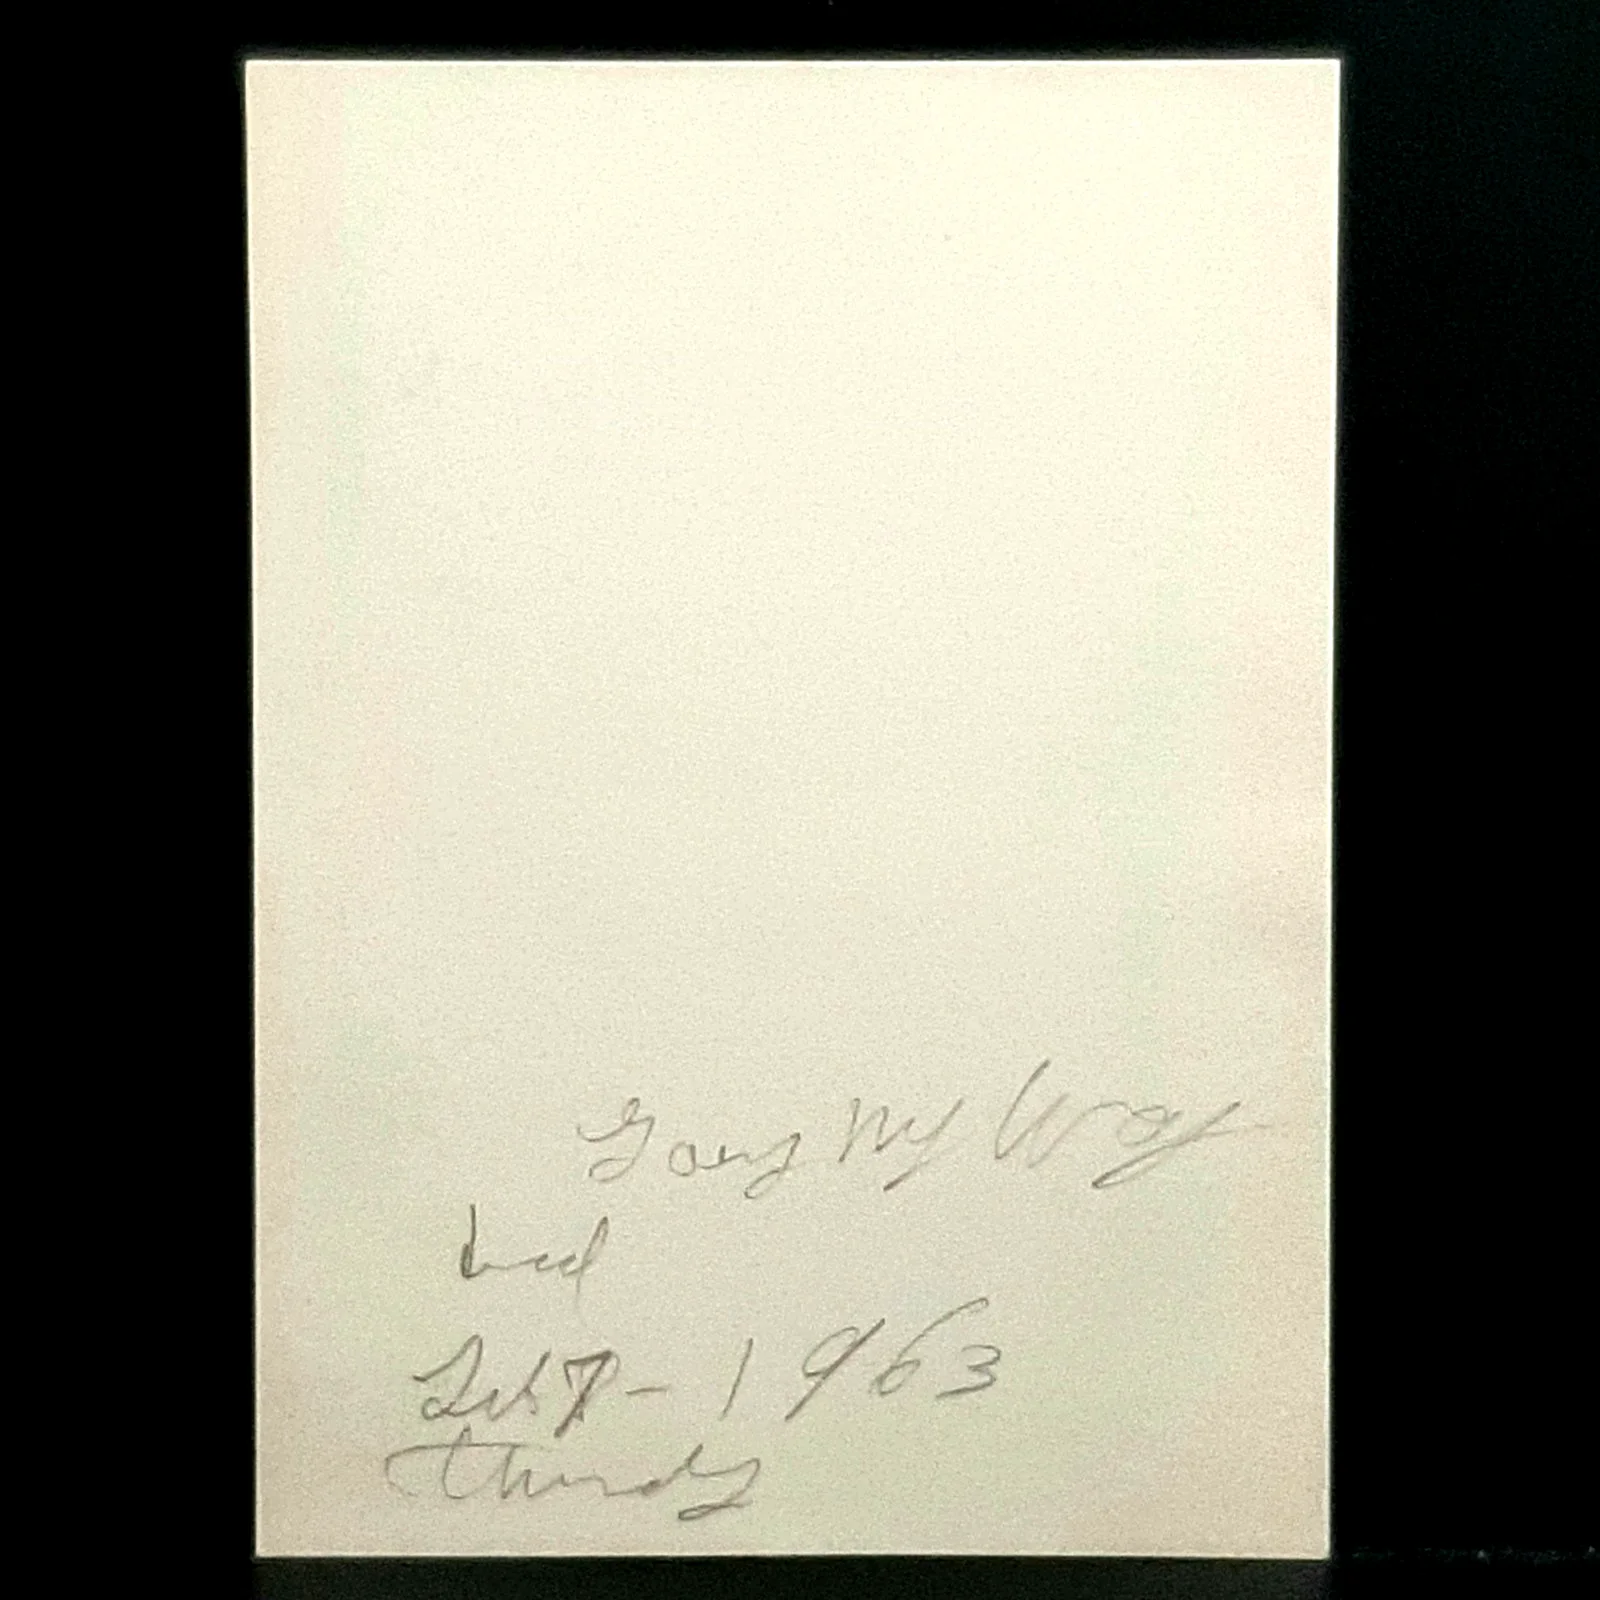 Going My Way
Wed
Feb 7 - 1963
thursdy